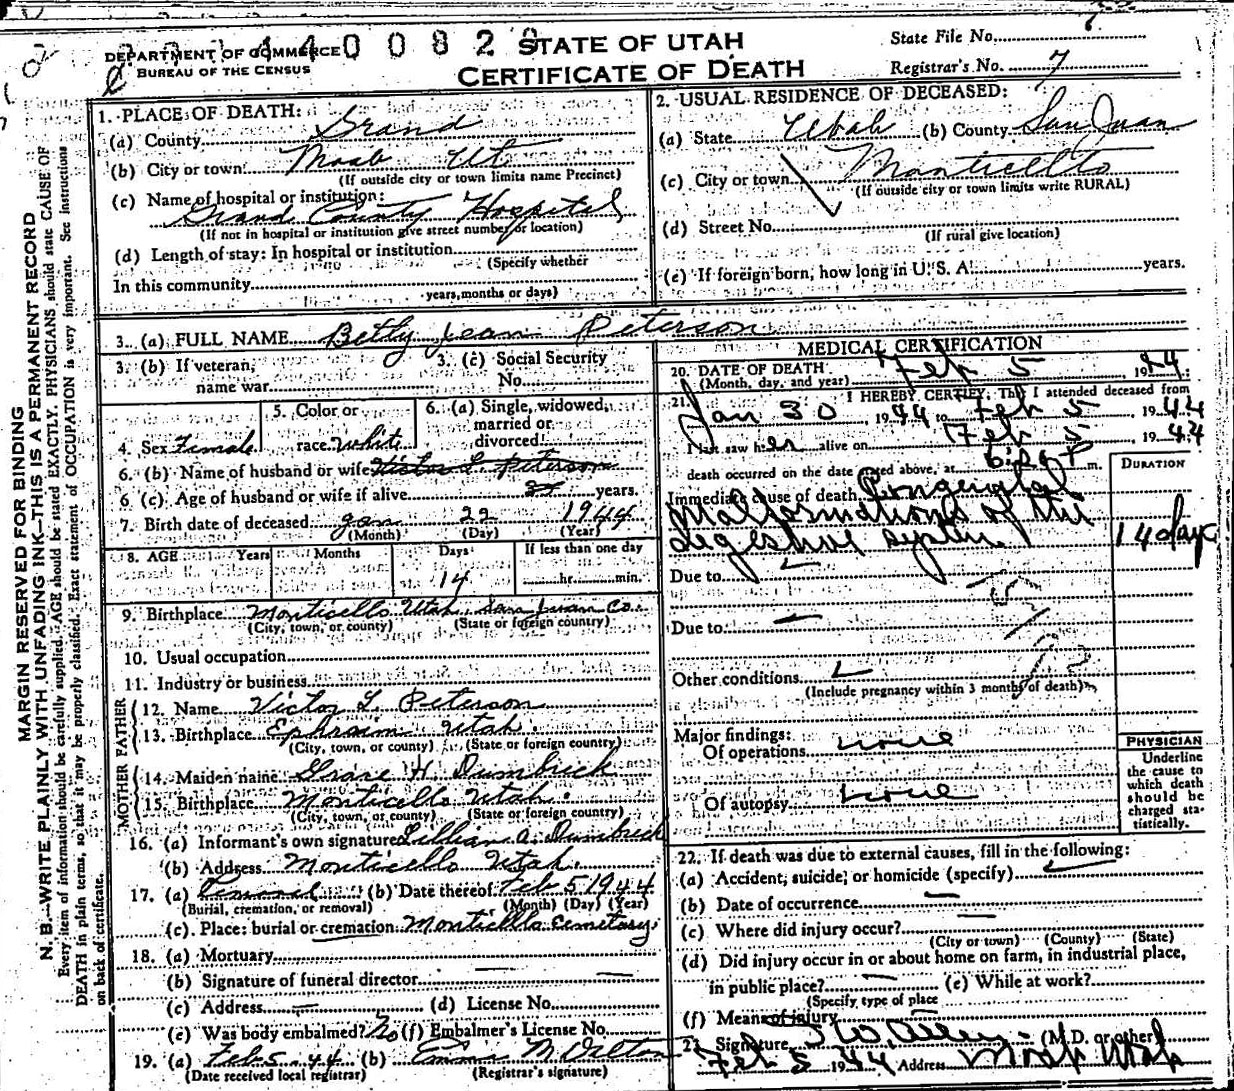 DEPARTMENT OF COMMERCE
BUREAU OF THE CENSUS
4 0 0 8 2
STATE OF UTAH
CERTIFICATE OF DEATH
State File No.
Registrar's No. 7
MARGIN RESERVED FOR BINDING
N. B.—WRITE PLAINLY WITH UNFADING INK—THIS IS A PERMANENT RECORD
Every item of information should be carefully supplied. AGE should be stated EXACTLY. PHYSICIANS should state CAUSE OF
DEATH in plain terms, so that it may be properly classified. Exact statement of OCCUPATION is very important. See instructions
on back of certificate.
1. PLACE OF DEATH:
(a) County Grand
(b) City or town Moab Ut
(If outside city or town limits name Precinct)
(c) Name of hospital or institution:
Grand County Hospital
(If not in hospital or institution give street number or location)
(d) Length of stay: In hospital or institution
(Specify whether
In this community
years, months or days)
2. USUAL RESIDENCE OF DECEASED:
(a) State Utah (b) County San Juan
(c) City or town Monticello
(If outside city or town limits write RURAL)
(d) Street No.
(If rural give location)
(e) If foreign born, how long in U. S. A. years.
3. (a) FULL NAME Betty Jean Peterson
3. (b) If veteran,
name war
3. (c) Social Security
No.
4. Sex Female
5. Color or
race White
6. (a) Single, widowed,
married or
divorced
6. (b) Name of husband or wife Victor L. Peterson
6 (c). Age of husband or wife if alive years.
7. Birth date of deceased Jan 22 1944
(Month) (Day) (Year)
8. AGE Years Months Days If less than one day
14 hr. min.
9. Birthplace Monticello Utah San Juan Co.
(City, town, or county) (State or foreign country)
10. Usual occupation
11. Industry or business
FATHER
12. Name Victor L Peterson
13. Birthplace Ephraim Utah.
(City, town, or county) (State or foreign country)
MOTHER
14. Maiden name Grace H. Dumbrick
15. Birthplace Monticello Utah.
(City, town, or county) (State or foreign country)
16. (a) Informant's own signature Lillian A. Dumbrick
(b) Address Monticello Utah.
17. (a) Removal (b) Date thereof Feb 5 1944
(Burial, cremation, or removal) (Month) (Day) (Year)
(c) Place: burial or cremation Monticello Cemetary.
18. (a) Mortuary
(b) Signature of funeral director
(c) Address (d) License No.
(e) Was body embalmed? No (f) Embalmer's License No.
19. (a) Feb 5 44 (b) Emma M. Dalton
(Date received local registrar) (Registrar's signature)
MEDICAL CERTIFICATION
20. DATE OF DEATH Feb 5, 1944
(Month, day, and year)
21. I HEREBY CERTIFY, That I attended deceased from
Jan 30, 1944 to Feb 5, 1944
I last saw her alive on Feb 5, 1944
death occurred on the date stated above, at P m.
DURATION
Immediate cause of death Congenital
Malformations of the
digestive system
14 days
Due to
Due to
Other conditions
(Include pregnancy within 3 months of death)
Major findings:
Of operations none
Of autopsy none
PHYSICIAN
Underline
the cause to
which death
should be
charged sta-
tistically.
22. If death was due to external causes, fill in the following:
(a) Accident, suicide, or homicide (specify)
(b) Date of occurrence
(c) Where did injury occur?
(City or town) (County) (State)
(d) Did injury occur in or about home on farm, in industrial place,
in public place? (e) While at work?
(Specify type of place
(f) Means of injury
23. Signature (M.D. or other)
Feb 5 1944 Address Moab Utah